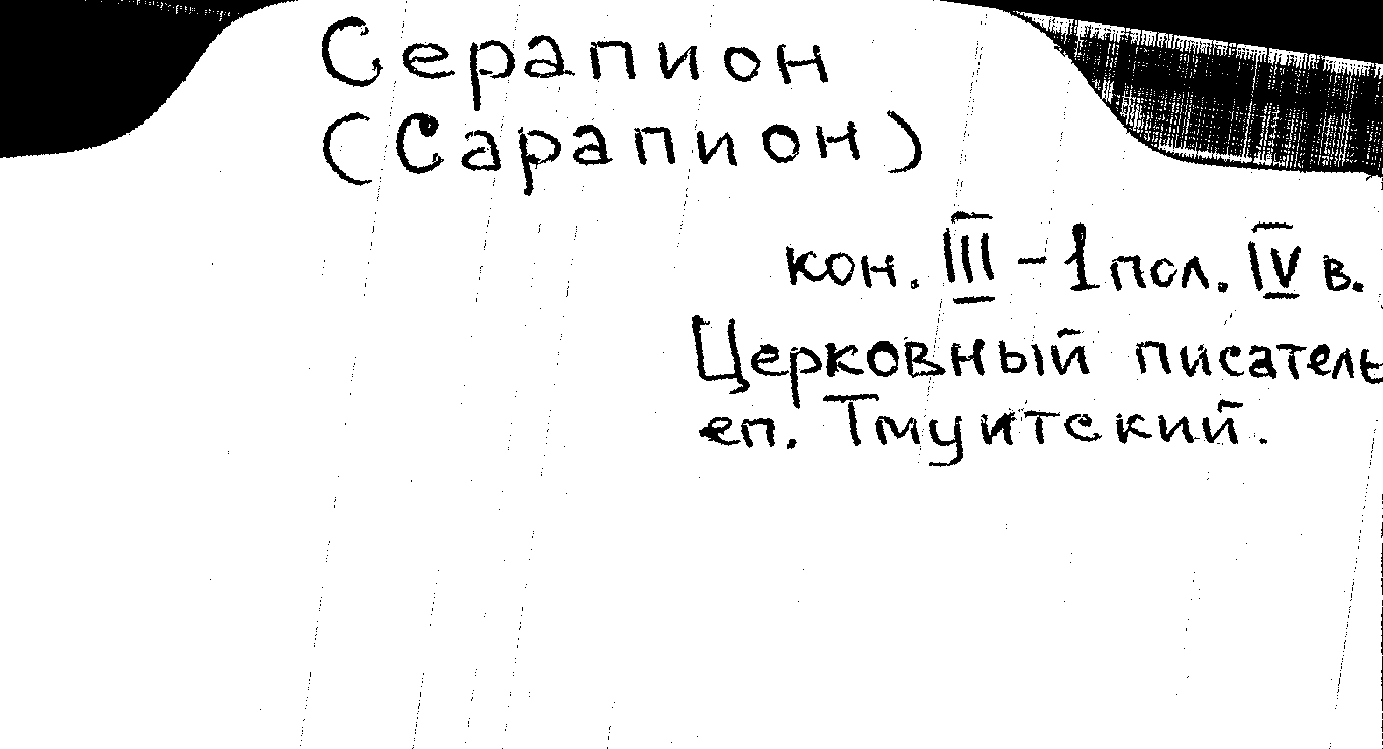 Серапион
(Сарапион)
кон. III - 1 пол. IV в.
Церковный писатель
еп. Тмуитский.